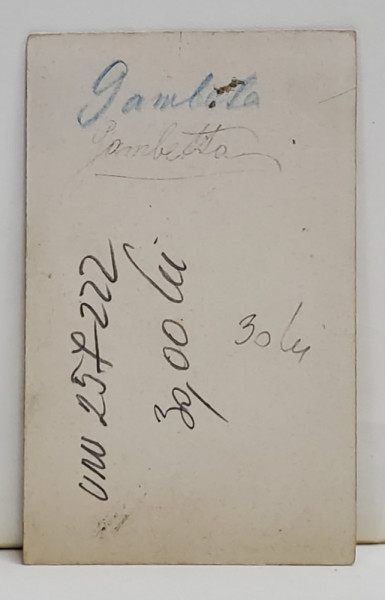 Gambetta
Gambetta
UNU 257222
30,00 lei
30 lei